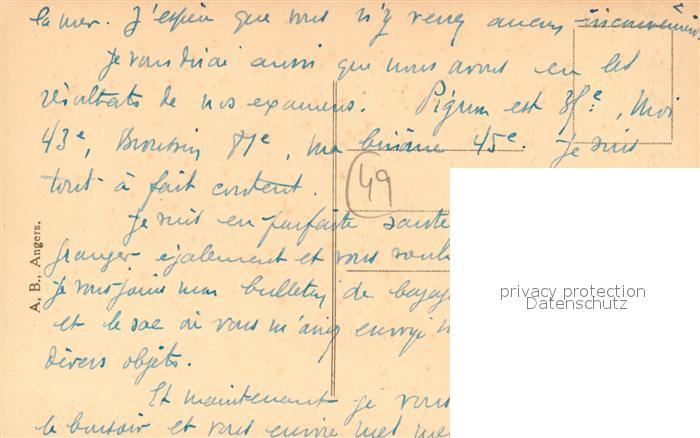 la mer. J'espère que vous n'y verrez aucun inconvénient.
Je vous dirai aussi que nous avons eu les
résultats de nos examens. Pignon est 38e, moi
43e, 81e, ma binôme 45e. Je suis
tout à fait content.
49
Je suis en parfaite santé
Granger également et vous
je vous joins mon bulletin de
et le sac où vous m'avez envoyé
divers objets.
Et maintenant je vous
le bonsoir et vous envoie mes
A. B., Angers.
privacy protection
Datenschutz